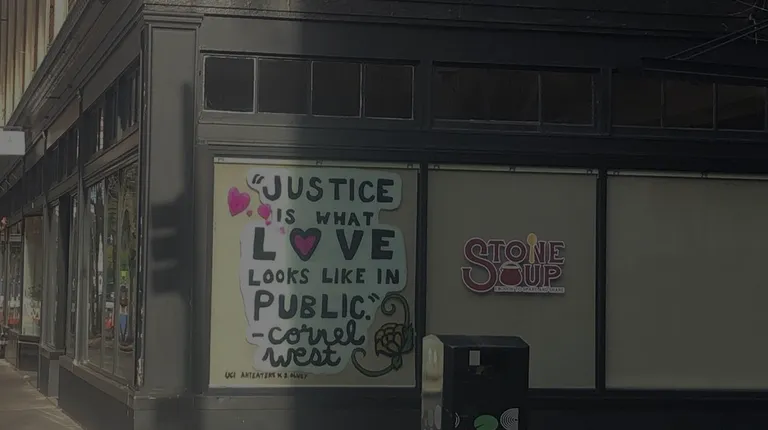 "JUSTICE
IS WHAT
LOVE
LOOKS LIKE IN
PUBLIC."
-cornel
west
STONE
SOUP